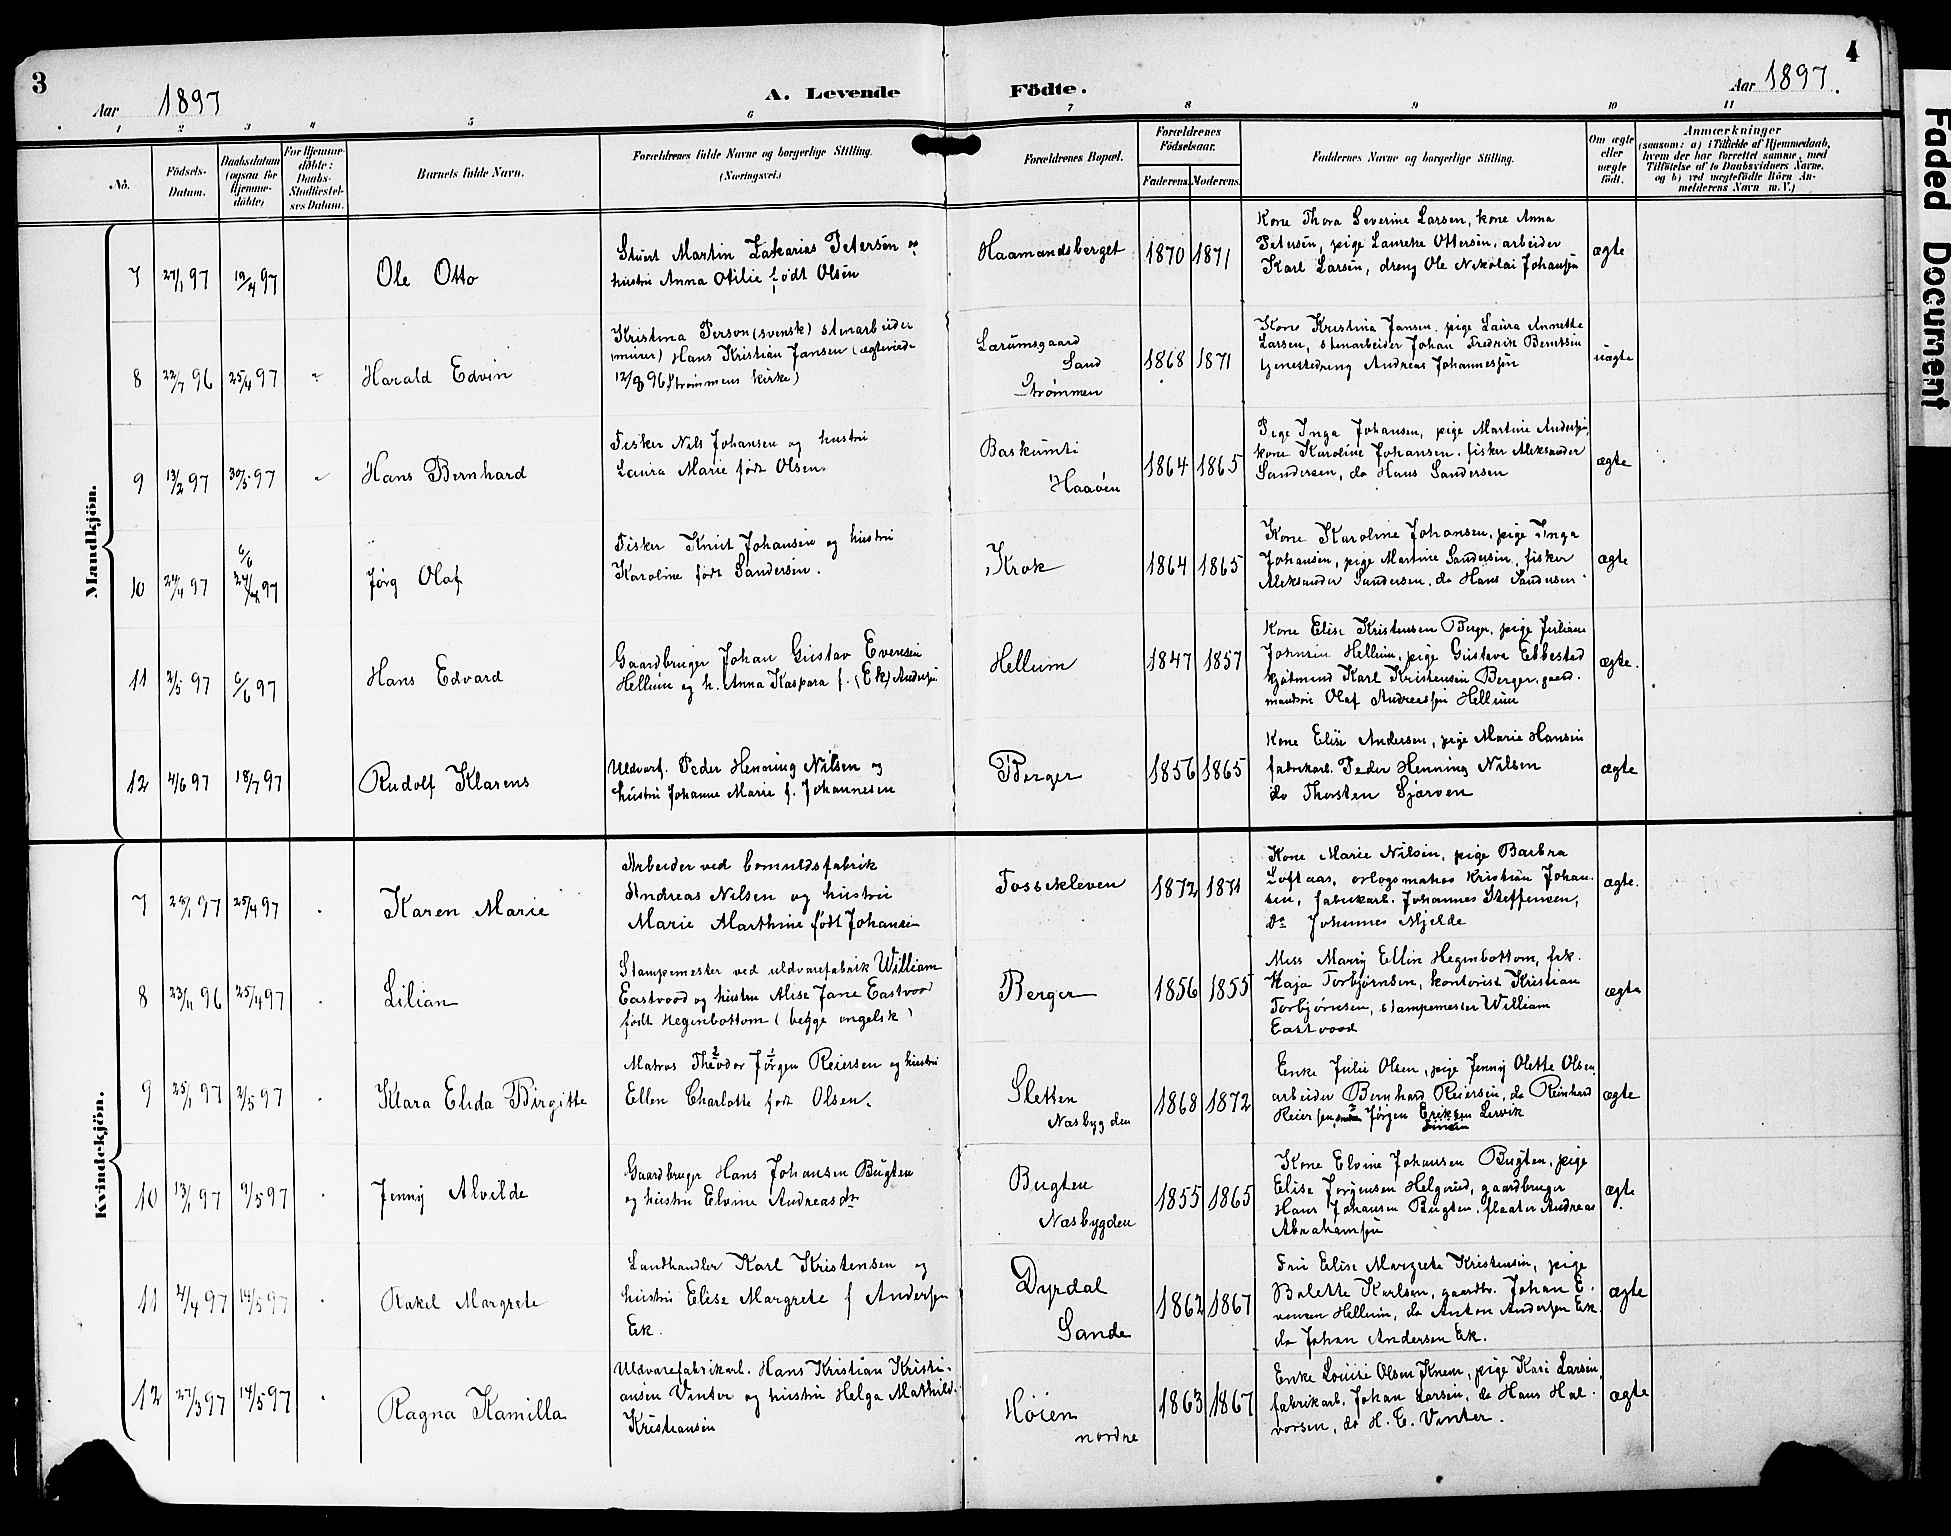 3
4
Aar 1897
A. Levende Födte.
Aar 1897.
1 2 3 4 5 6 7 8 9 10 11
No.
Födsels-Datum.
Daabsdatum (ogsaa for Hjemme-döbte)
For Hjemme-döbte: Daabs-Stadfæstel-ses Datum.
Barnets fulde Navn.
Forældrenes fulde Navne og borgerlige Stilling. (Næringsvei.)
Forældrenes Bopæl.
Forældrenes Födselsaar.
Faderens. Moderens.
Faddernes Navne og borgerlige Stilling.
Om ægte eller uægte födt.
Anmærkninger
(saasom: a) i Tilfælde af Hjemmedaab,
hvem der har forrettet samme, med
Tilföielse af to Daabsvidners Navne.
og b) ved uægtefödte Börn An-
melderens Navn m. V.)
Mandkjön.
7 27/1 97 19/4 97 Ole Otto
Stuert Martin Zakarias Petersen og
hustru Anna Otilie født Olsen
Haamandsberget 1870 1871
Kone Thora Severine Larsen, kone Anna
Petersen, pige Laureke Ottersen, arbeider
Karl Larsen, dreng Ole Nikolai Johansen
ægte
8 22/7 96 25/4 97 " Harald Edvin
Kristina Person (svensk) stenarbeider
(murer) Hans Kristian Jansen (ægteviede
12/8 96 Strømmens kirke)
Lærumsgaard
Sand
Strømmen
1868 1871
Kone Kristina Jansen, pige Laura Annette
Larsen, stenarbeider Johan Fredrik Berntsen
tjenestedreng Andreas Johannessen
uægte
9 13/2 97 30/5 97 " Hans Bernhard
Fisker Nils Johansen og hustru
Laura Marie født Olsen.
Baskumti
Haaøen
1864 1865
Pige Inga Johansen, pige Martine Andersen,
kone Karoline Johansen, fisker Aleksander
Sandersen, do Hans Sandersen
ægte
10 24/4 97 6/6 97 Jørg Olaf
Fisker Knut Johansen og hustru
Karoline født Sandersen.
Krok 1864 1865
Kone Karoline Johansen, pige Inga
Johansen, pige Martine Sandersen, fisker
Aleksander Sandersen, do Hans Sandersen.
ægte
11 2/5 97 6/6 97 Hans Edvard
Gaardbruger Johan Gustav Evensen
Hellum og h. Anna Kaspara f. (Ek) Andersen
Hellum 1847 1857
Kone Elise Kristensen Berger, pige Juliane
Johnsen Hellum, pige Gustava Ebbestad
kjøbmand Karl Kristensen Berger, gaard-
mandsøn Olaf Andreassen Hellum
ægte.
12 4/6 97 18/7 97 Rudolf Klarens
Uldvarf. Peder Henning Nilsen og
hustru Johanne Marie f. Johannesen
Berger 1856 1865
Kone Elise Andersen, pige Marie Hansen
fabrikarb. Peder Henning Nilsen
do Thorsten Sjærven
ægte
Kvindekjön.
7 97 25/4 97 Karen Marie
Arbeider ved bomuldsfabrik
Andreas Nilsen og hustru
Marie Marthine født Johansen
Fossekleven 1872 1871
Kone Marie Nilsen, pige Barbra
Loftaas, orlogsmatros Kristian Johan-
sen, fabrikarb. Johannes Steffensen,
do Johannes Mjelde
ægte.
8 23/11 96 25/4 97 Lilian
Stampemester ved uldvarefabrik William
Eastvood og hustru Alise Jane Eastvood
født Hegenbottom (begge engelsk)
Berger 1856 1855
Miss Marry Ellin Hegenbottom, frk.
Kaja Torbjørnsen, kontorist Kristian
Torbjørnsen, stampemester William
Eastvood
ægte
9 25/1 97 2/5 97 Klara Elida Birgitte
Matros Theodor Jørgen Reiersen og hustru
Ellen Charlotte født Olsen.
Sletten
Næsbygden
1868 1872
Enke Julie Olsen, pige Jenny Olette Olsen
arbeider Bernhard Reiersen, do Reinhard
Reiersen, Jørgen Eriksen Lervik
ægte
10 13/1 97 9/5 97 Jenny Alvilde
Gaardbruger Hans Johansen Bugten
og hustru Elvine Andreasdtr
Bugten
Næsbygden
1855 1865
Kone Elvine Johansen Bugten, pige
Elise Jørgensen Helgerud, gaardbruger
Hans Johansen Bugten, fløater Andreas
Abrahamsen
ægte
11 4/4 97 14/5 97 Rakel Margrete
Landhandler Karl Kristensen og
hustru Elise Margrete f Andersen
Ek.
Dyrdal
Sande
1862 1867
Fru Elise Margrete Kristensen, pige
Bolette Karlsen, gaardbr. Johan E-
vensen Hellum, do Anton Andersen Ek.
do Johan Andersen Ek.
ægte
12 27/3 97 14/5 97 Ragna Kamilla
Uldvarefabrikarb. Hans Kristian Kristi-
ansen Vinter og hustru Helga Mathild.
Kristiansen
Høien
nordre
1863 1867
Enke Louise Olsen Knem, pige Kari Larsen,
fabrikarb. Johan Larsen, do Hans Hal-
vorsen, do H. C. Vinter.
ægte
Faded Document